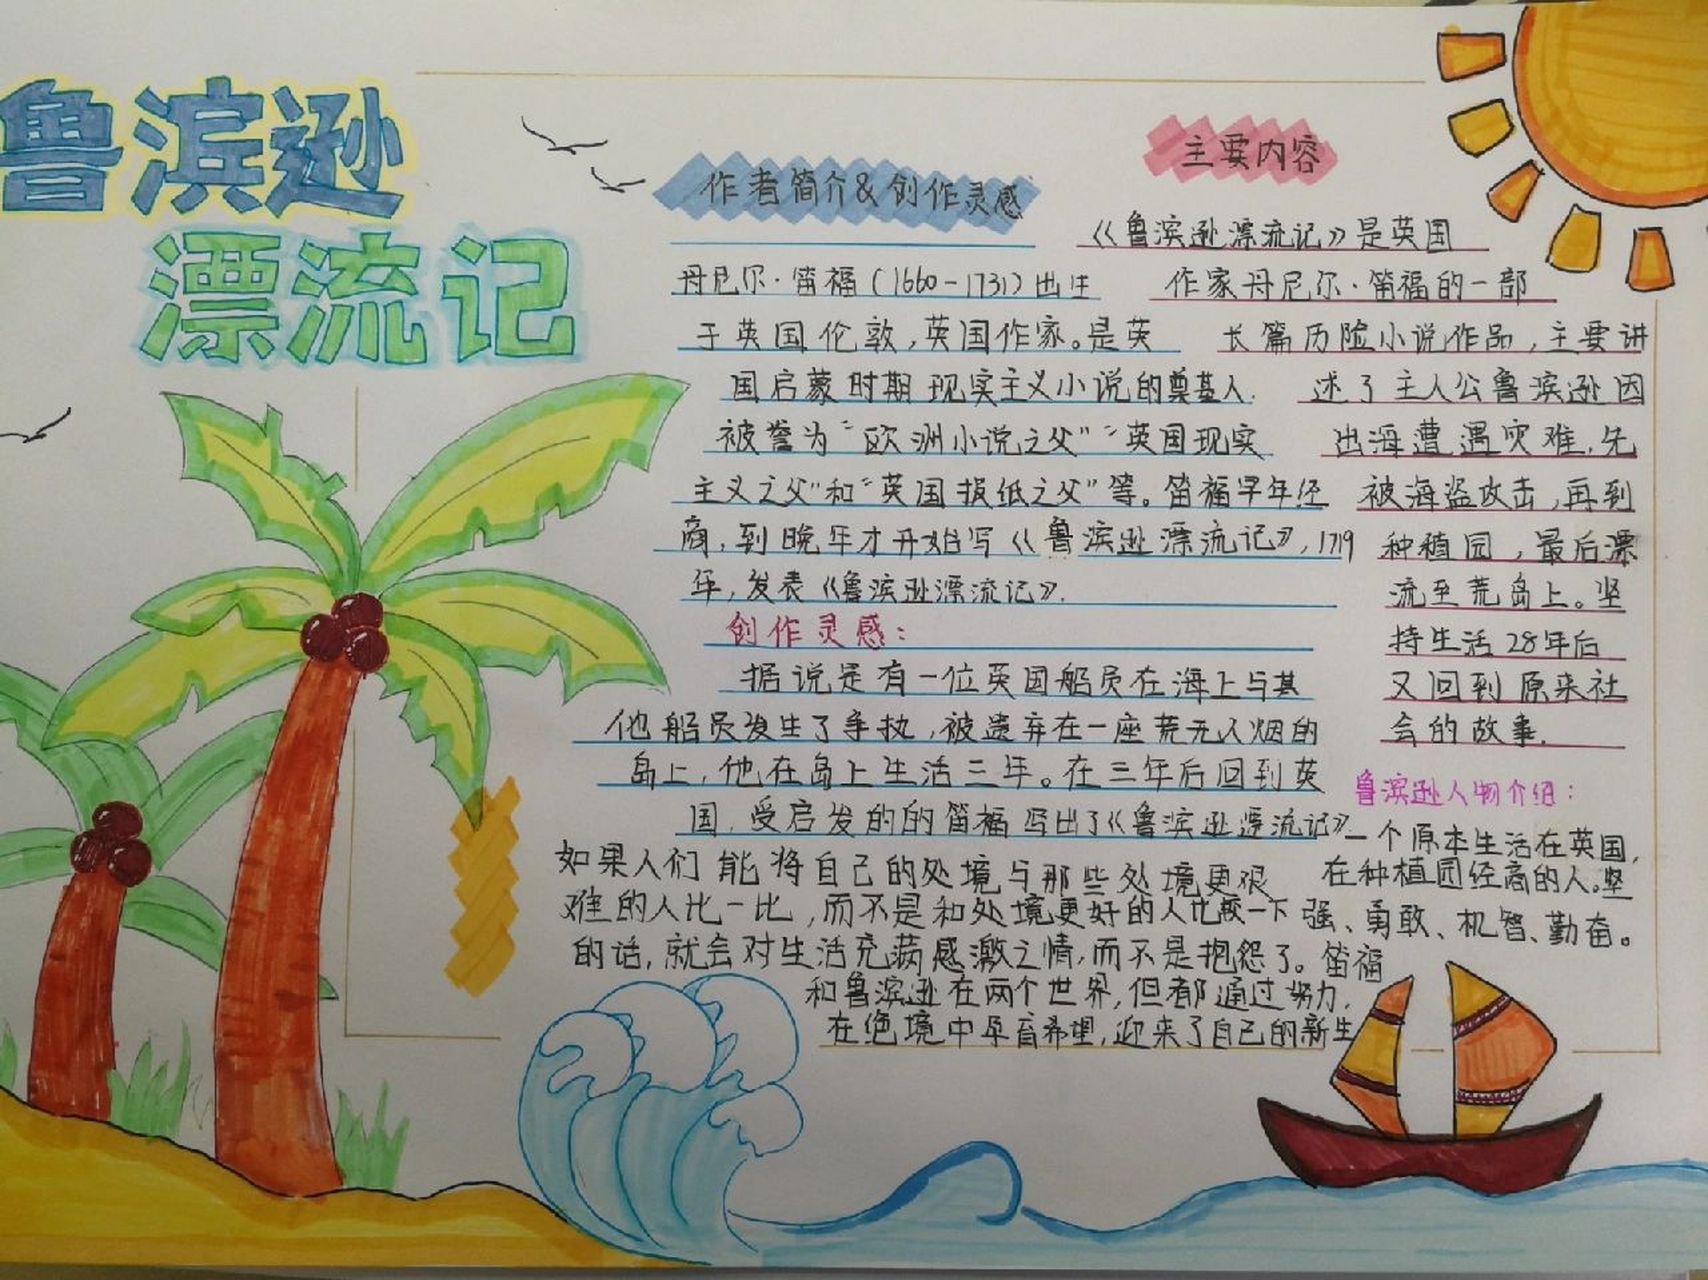 鲁滨逊
漂流记
作者简介&创作灵感
丹尼尔·笛福(1660-1731)出生
于英国伦敦,英国作家。是英
国启蒙时期现实主义小说的奠基人.
被誉为“欧洲小说之父”“英国现实
主义之父”和“英国报纸之父”等。笛福早年经
商,到晚年才开始写《鲁滨逊漂流记》,1719
年,发表《鲁滨逊漂流记》.
创作灵感:
据说是有一位英国船员在海上与其
他船员发生了争执,被遗弃在一座荒无人烟的
岛上,他在岛上生活三年。在三年后回到英
国,受启发的的笛福写出了《鲁滨逊漂流记》
如果人们能将自己的处境与那些处境更艰
难的人比一比,而不是和处境更好的人比较一下
的话,就会对生活充满感激之情,而不是抱怨了。笛福
和鲁滨逊在两个世界,但都通过努力,
在绝境中孕育希望,迎来了自己的新生
主要内容
《鲁滨逊漂流记》是英国
作家丹尼尔·笛福的一部
长篇历险小说作品,主要讲
述了主人公鲁滨逊因
出海遭遇灾难,先
被海盗攻击,再到
种植园,最后漂
流至荒岛上。坚
持生活28年后
又回到原来社
会的故事.
鲁滨逊人物介绍:
一个原本生活在英国,
在种植园经商的人。坚
强、勇敢、机智、勤奋。